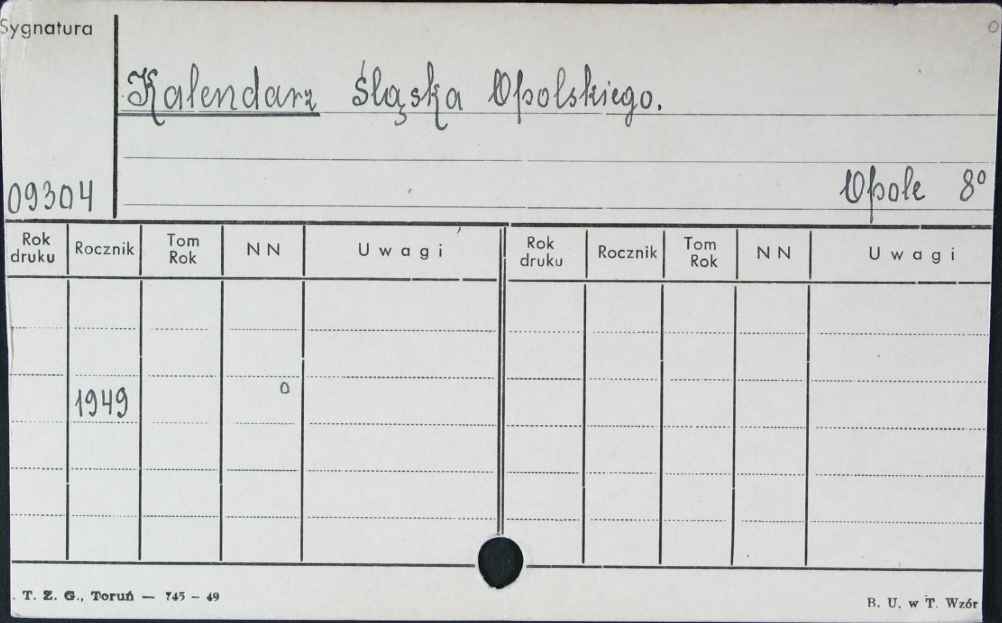 Sygnatura
Kalendarz Śląska Opolskiego.
09304
Opole 8°
Rok druku Rocznik Tom Rok NN Uwagi Rok druku Rocznik Tom Rok NN Uwagi
1949 o
. T. Z. G., Toruń — 745 – 49
B. U. w T. Wzór